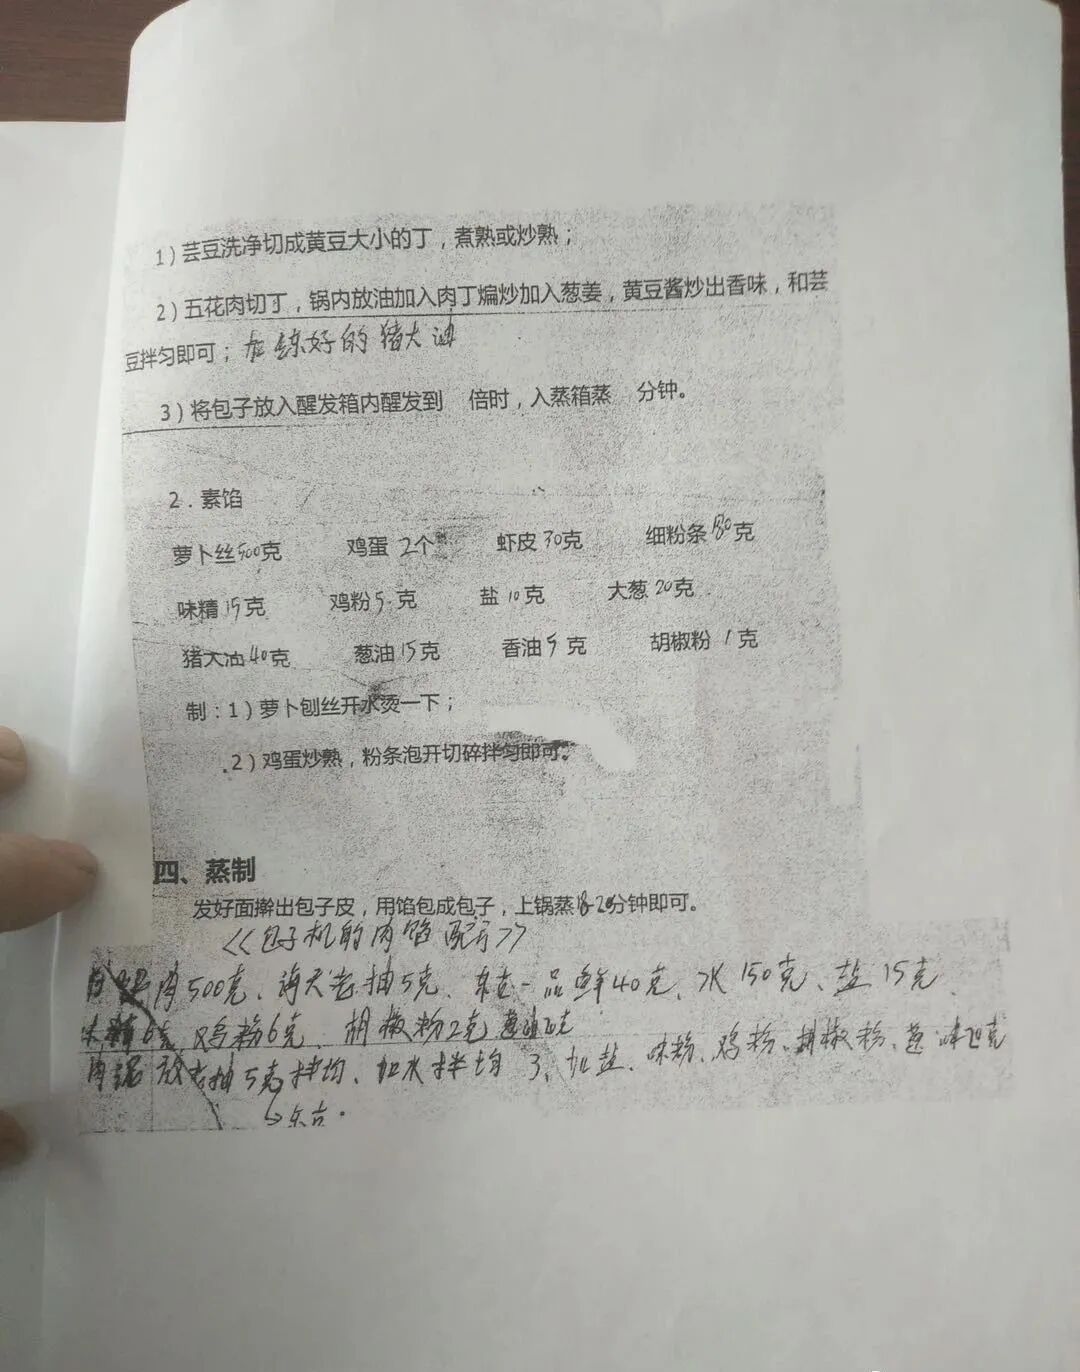 1）芸豆洗净切成黄豆大小的丁，煮熟或炒熟；
2）五花肉切丁，锅内放油加入肉丁煸炒加入葱姜，黄豆酱炒出香味，和芸
豆拌匀即可；加炼好的猪大油
3）将包子放入醒发箱内醒发到 倍时，入蒸箱蒸 分钟。
2．素馅
萝卜丝500克 鸡蛋2个 虾皮30克 细粉条80克
味精15克 鸡粉5克 盐10克 大葱20克
猪大油40克 葱油15克 香油5克 胡椒粉1克
制：1）萝卜刨丝开水烫一下；
2）鸡蛋炒熟，粉条泡开切碎拌匀即可。
四、蒸制
发好面擀出包子皮，用馅包成包子，上锅蒸18-20分钟即可。
<<包子机的肉馅配方>>
肉500克、海天老抽5克、东古一品鲜40克、水150克、盐15克
味精6克 鸡粉6克、胡椒粉2克
肉泥放老抽5克拌均、加水拌均 3、加盐、味粉、鸡粉、胡椒粉、葱
东古.